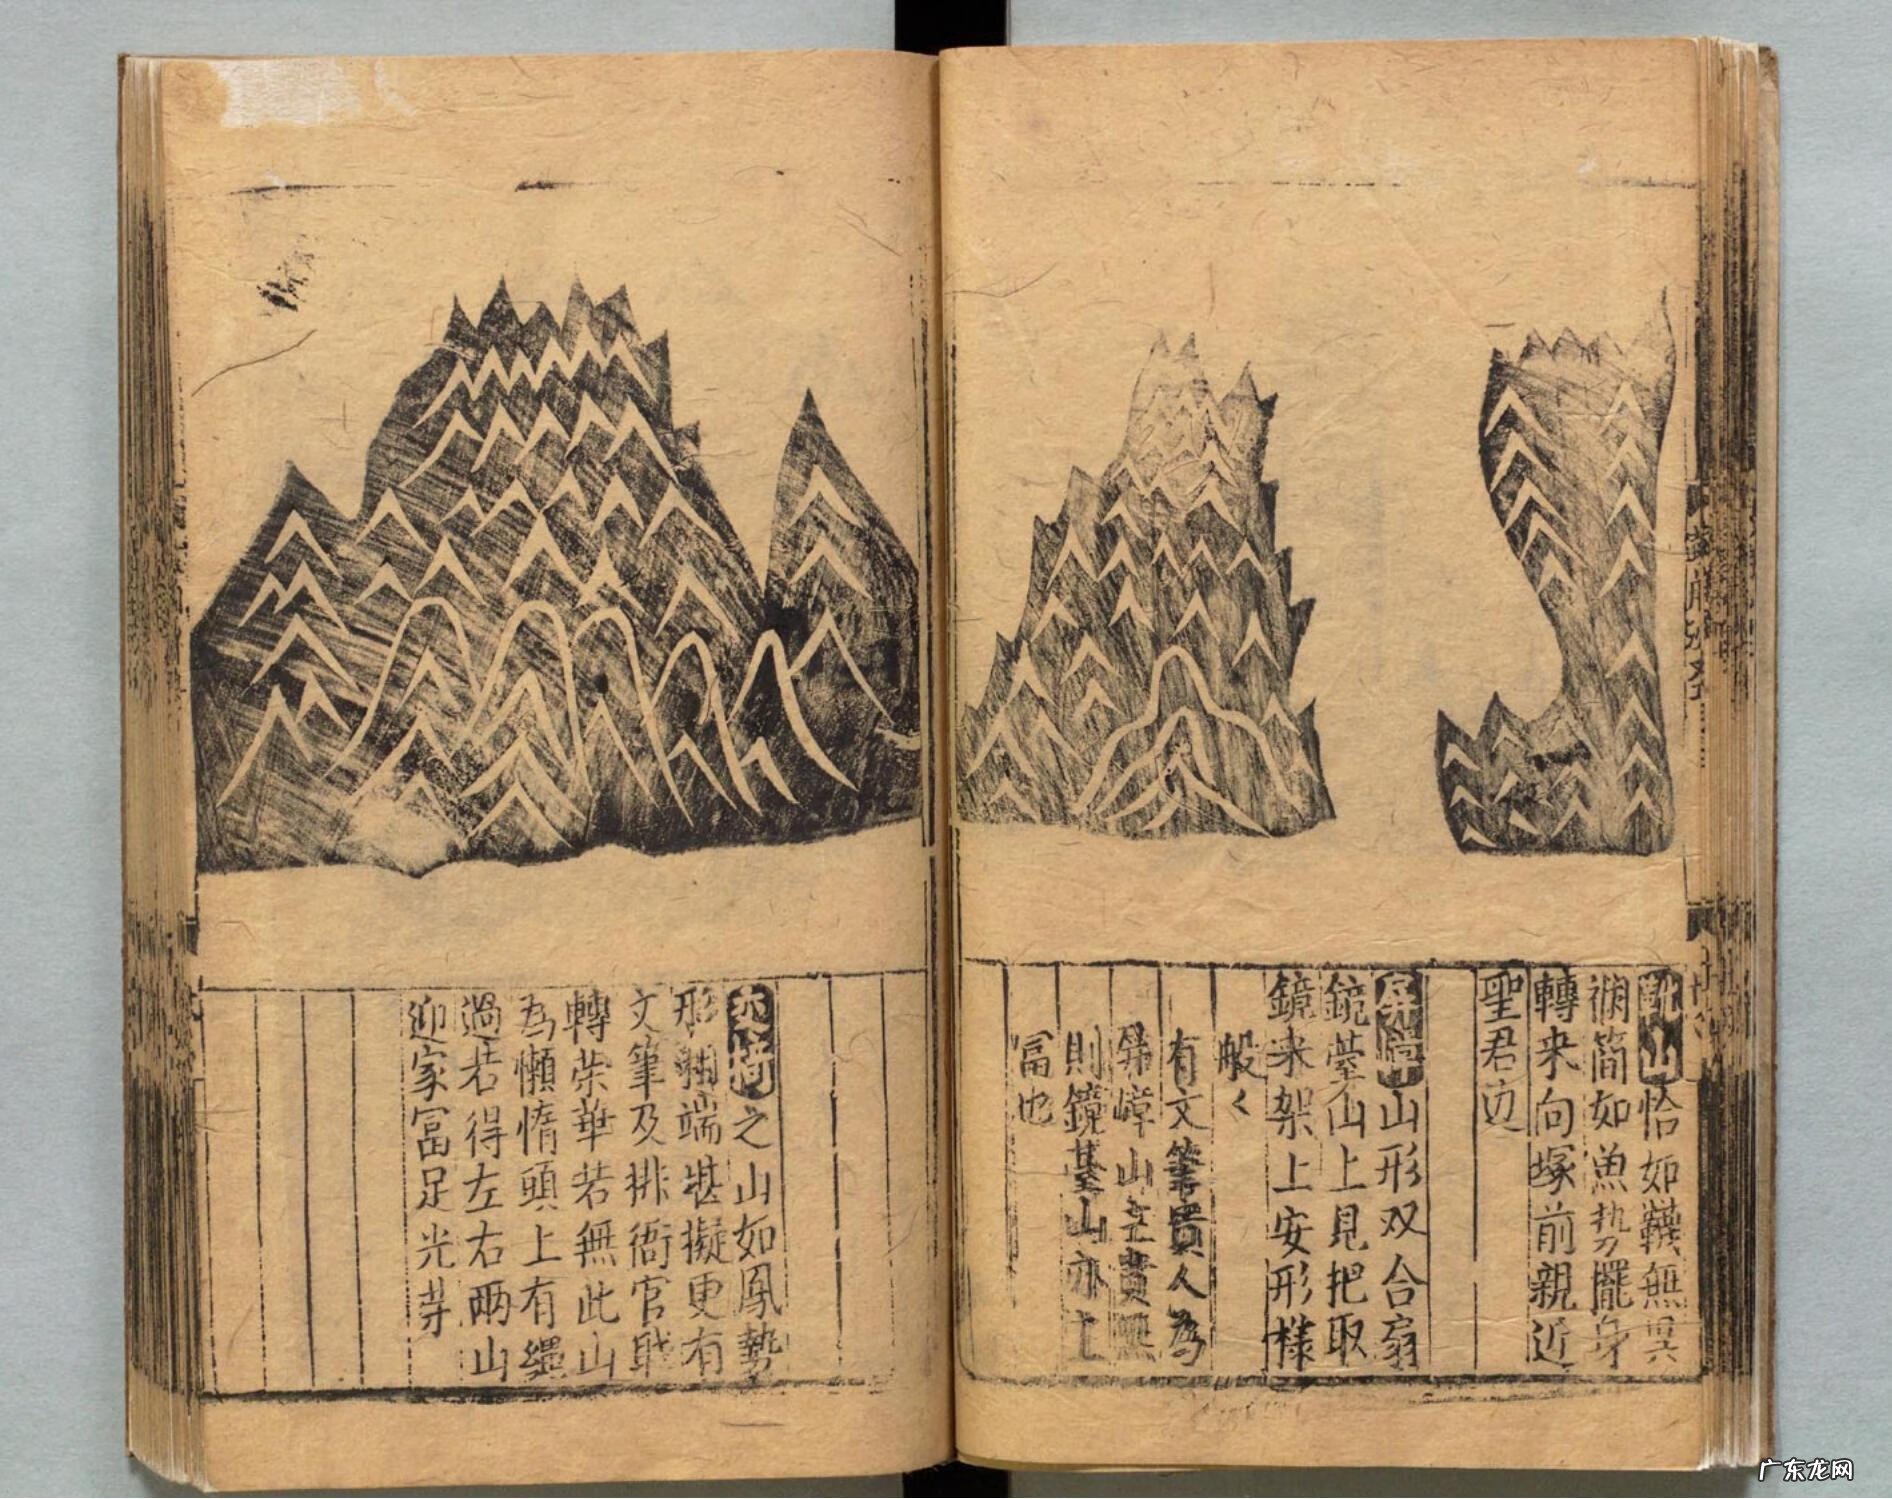 靴山恰如襪無異
彿简如魚势擺身
轉来向塚前親近
聖君边
屏嶂山形双合扇
鏡臺山上見把取
鏡来架上安形樣
般く
有文筆貴人為
屏嶂山主貴無
則鏡基山亦主
冨也
之山如鳳勢
形端堪擬更有
文筆及排衙官職
轉荣華若無此山
為懶惰頭上有繩
過若得左右兩山
迎家冨足光芽
广东龙网